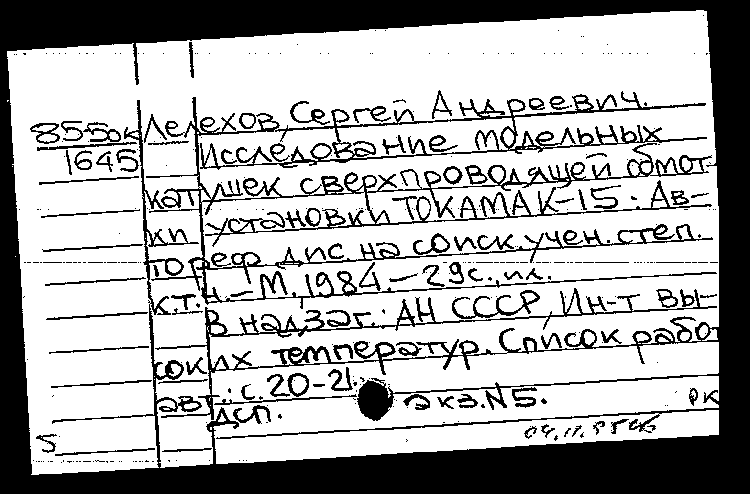 85-5ок Лелехов, Сергей Андреевич.
1645 Исследование модельных
катушек сверхпроводящей обмот-
ки установки ТОКАМАК-15: Ав-
тореф. дис. на соиск. учен. степ.
к.т.н. – М., 1984. – 29с., ил.
В надзаг.: АН СССР, Ин-т вы-
соких температур. Список работ
авт.: с. 20-21.
ДСП. экз. N5. РК
5 04.11.85